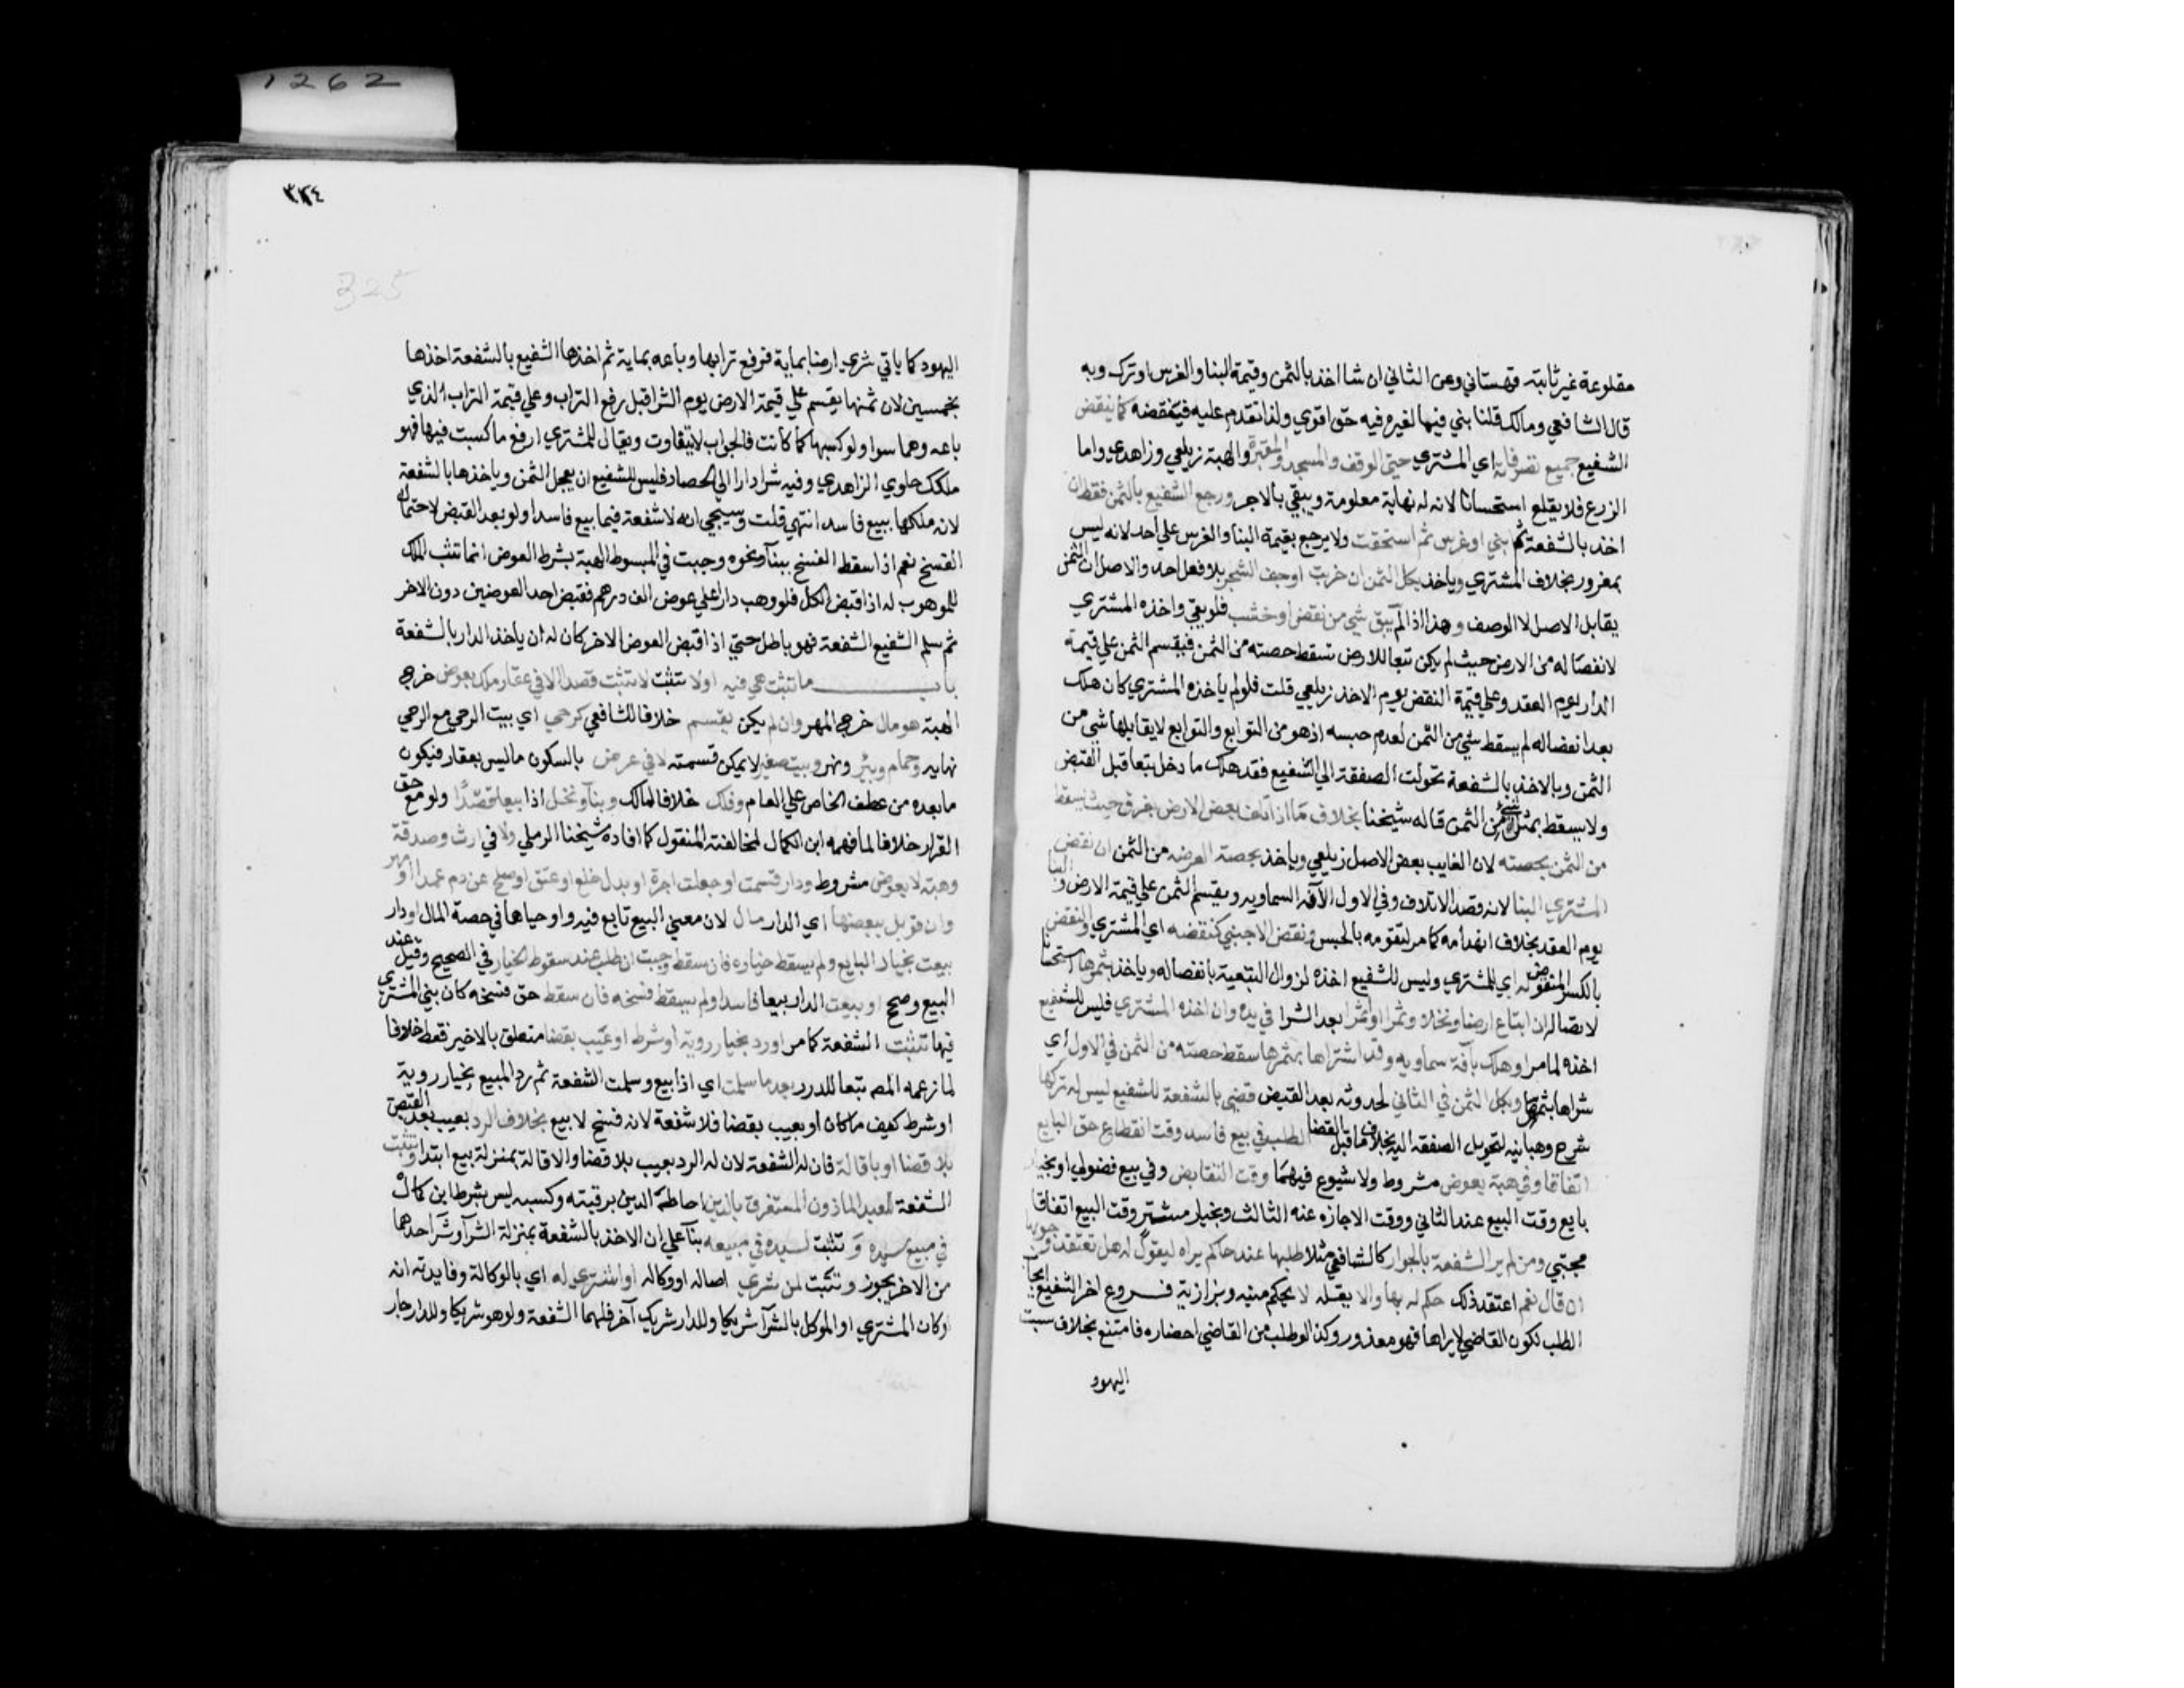 مقلوعة غير ثابتة قهستاني وعن الثاني ان شا اخذ بالثمن وقيمة البنا والغرس او ترك وبه
قال الشافعي ومالك قلنا بني فيما لغيره فيه حق اقوي ولذا تقدم عليه فينقضه كما ينقض
الشفيع جميع تصرفاته اي المشتري حتي الوقف والمسجد والمقبرة والهبة زيلعي وزاهدي واما
الزرع فلا يقلع استحسانا لانه له نهاية معلومة ويبقي بالاجر ورجع الشفيع بالثمن فقط ان
اخذ بالشفعة ثم بني او غرس ثم استحقت ولا يرجع بقيمة البنا والغرس علي احد لانه ليس
بمغرور بخلاف المشتري وياخذ بكل الثمن ان خربت او جف الشجر بلا فعل احد والاصل ان الثمن
يقابل الاصل لا الوصف وهذا اذا لم يبق شي من نقض او خشب فلو بقي واخذه المشتري
لانفصاله من الارض حيث لم يكن تبعا للارض تسقط حصته من الثمن فيقسم الثمن علي قيمة
الدار يوم العقد وعلي قيمة النقض يوم الاخذ زيلعي قلت فلو لم ياخذه المشتري كان هلك
بعد انفصاله لم يسقط شي من الثمن لعدم حبسه اذ هو من التوابع والتوابع لا يقابلها شي من
الثمن وبالاخذ بالشفعة تحولت الصفقة الي الشفيع فقد هلك ما دخل تبعا قبل القبض
ولا يسقط بمثله شي من الثمن قاله شيخنا بخلاف ما اذا تلف بعض الارض بغرق حيث يسقط
من الثمن بحصته لان الغايب بعض الاصل زيلعي وياخذ بحصة العرصة من الثمن ان نقض
المشتري البنا لانه قصد الاتلاف وفي الاول الآفة السماوية ويقسم الثمن علي قيمة الارض والبنا
يوم العقد بخلاف انهدامه كما مر لتقومه بالحبس ونقض الاجنبي كنقضه اي المشتري والنقض
بالكسر المنقوض له اي للمشتري وليس للشفيع اخذه لزوال التبعية بانفصاله وياخذ بثمرها استحسانا
لاتصاله ان ابتاع ارضا ونخلا وثمرا او اثمرا بعد الشرا في يده وان اخذه المشتري فليس للشفيع
اخذه لما مر او هلك بآفة سماوية وقد اشتراها بثمرها سقط حصته من الثمن في الاول اي
شراها بثمرها وبكل الثمن في الثاني لحدوثه بعد القبض قضي بالشفعة للشفيع ليس له تركها
شرح وهبانيه لتحويل الصفقة اليه بخلاف ما قبل القضا الطلب في بيع فاسد وقت انقطاع حق البايع
اتفاقا وفي هبة بعوض مشروط ولا شيوع فيهما وقت التقابض وفي بيع فضولي او بخيار
بايع وقت البيع عند الثاني ووقت الاجازه عند الثالث وبخيار مشتر وقت البيع اتفاقا
مجتبي ومن لم ير الشفعة بالجوار كالشافعي مثلا طلبها عند حاكم يراه ليقول له هل تعتقد وجوبها
ان قال نعم اعتقد ذلك حكم له بها والا يقله لا يحكم منيه وبزازية فروع اخر الشفيع الجار
الطلب لكون القاضي لا يراها فهو معذور وكذا لو طلب من القاضي احضاره فامتنع بخلاف سبت
اليهود
٣٢٤
325
اليهود كما ياتي شري ارضا بماية فرفع ترابها وباعه بماية ثم اخذها الشفيع بالشفعة اخذها
بخمسين لان ثمنها يقسم علي قيمة الارض يوم الشرا قبل رفع التراب وعلي قيمة التراب الذي
باعه وهما سوا ولو كبسها كما كانت فالجواب لا يتفاوت ويقال للمشتري ارفع ما كبست فيها فهو
ملكك حاوي الزاهدي وفيه شرا دارا الي الحصاد فليس للشفيع ان يعجل الثمن وياخذها بالشفعة
لانه ملكها ببيع فاسد انتهي قلت وسيجي انه لا شفعة فيما بيع فاسدا ولو بعد القبض لاحتمال
الفسخ نعم اذا سقط الفسخ ببنآ ونحوه وجبت في المبسوط الهبة بشرط العوض انما تثبت الملك
للموهوب له اذا قبض الكل فلو وهب دارا علي عوض الف درهم فقبض احد العوضين دون الاخر
ثم سلم الشفيع الشفعة فهو باطل حتي اذا قبض العوض الاخر كان له ان ياخذ الدار بالشفعة
باب ما تثبت هي فيه اولا تثبت لا تثبت قصدا الا في عقار ملك بعوض خرج
الهبة هو مال خرج المهر وان لم يكن يقسم خلافا للشافعي كرحي اي بيت الرحي مع الرحي
نهايه وحمام وبئر ونهر وبيت صغير لا يمكن قسمته لا في عرض بالسكون ما ليس بعقار فيكون
ما بعده من عطف الخاص علي العام وفلك خلافا لمالك وبنآ ونخل اذا بيعا قصدا ولو مع حق
القرار خلافا لما فهمه ابن الكمال لمخالفته المنقول كما افاده شيخنا الرملي ولا في ارث وصدقة
وهبة لا بعوض مشروط ودار قسمت او جعلت اجرة او بدل خلع او عتق او صلح عن دم عمدا او مهر
وان قوبل ببعضها اي الدار مال لان معني البيع تابع فيه واوجباها في حصة المال او دار
بيعت بخيار البايع ولم يسقط خياره فان سقط وجبت ان طلب عند سقوط الخيار في الصحيح وقيل عند
البيع وصحح او بيعت الدار بيعا فاسدا ولم يسقط فسخه فان سقط حق فسخه كان بني المشتري
فيها تثبت الشفعة كما مر او رد بخيار روية او شرط او عيب بقضا متعلق بالاخير فقط خلافا
لما زعمه المص تبعا للدرر بعد ما سلمت اي اذا بيع وسلمت الشفعة ثم رد المبيع بخيار روية
او شرط كيف ما كان او بعيب بقضا فلا شفعة لانه فسخ لا بيع بخلاف الرد بعيب بعد القبض
بلا قضا او باقالة فان له الشفعة لان له الرد بعيب بلا قضا والاقالة بمنزلة بيع ابتدا وتثبت
الشفعة للعبد الماذون المستغرق بالدين احاطة الدين برقبته وكسبه ليس بشرط ابن كمال
في مبيع سيده و تثبت لسيده في مبيعه بنآ علي ان الاخذ بالشفعة بمنزلة الشرآ وشرآ احدهما
من الاخر يجوز و تثبت لمن شري اصالة او وكالة او اشتري له اي بالوكالة وفايدته انه
لو كان المشتري او الموكل بالشرآ شريكا وللدار شريك آخر فلهما الشفعة ولو هو شريكا وللدار جار